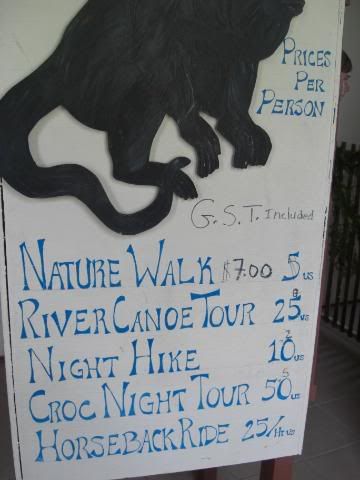 PRICES
PER
PERSON
G.S.T. Included
NATURE WALK $7.00 5 US
RIVER CANOE TOUR 25 US
NIGHT HIKE 10 US
CROC NIGHT TOUR 50 US
HORSEBACK RIDE 25/Hr US